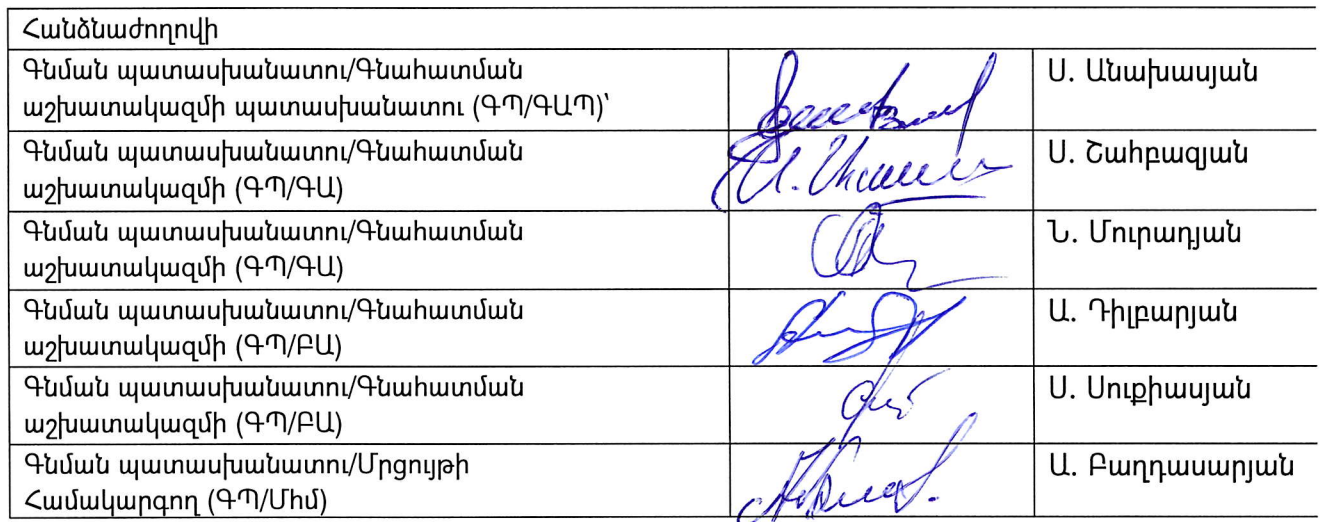 Հանձնաժողովի
Գնման պատասխանատու/Գնահատման
աշխատակազմի պատասխանատու (ԳՊ/ԳԱՊ)՝
Ս. Անախասյան
Գնման պատասխանատու/Գնահատման
աշխատակազմի (ԳՊ/ԳԱ)
Ս. Շահբազյան
Գնման պատասխանատու/Գնահատման
աշխատակազմի (ԳՊ/ԳԱ)
Ն. Մուրադյան
Գնման պատասխանատու/Գնահատման
աշխատակազմի (ԳՊ/ԲԱ)
Ա. Դիլբարյան
Գնման պատասխանատու/Գնահատման
աշխատակազմի (ԳՊ/ԲԱ)
Ս. Սուքիասյան
Գնման պատասխանատու/Մրցույթի
Համակարգող (ԳՊ/Մհմ)
Ա. Բաղդասարյան